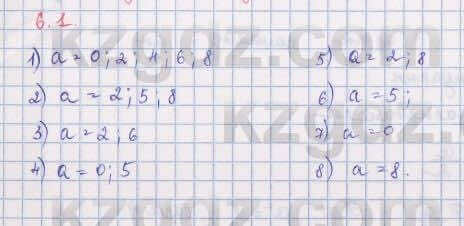 6.1.
1) a = 0; 2; 4; 6; 8
2) a = 2; 5; 8
3) a = 2; 6
4) a = 0; 5
5) a = 2; 8
6) a = 5;
7) a = 0
8) a = 8.
kzgoz.com
kzgoz.com